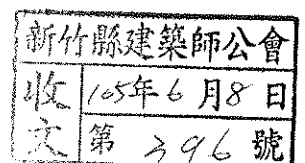 新竹縣建築師公會
收文
105年6月8日
第396號